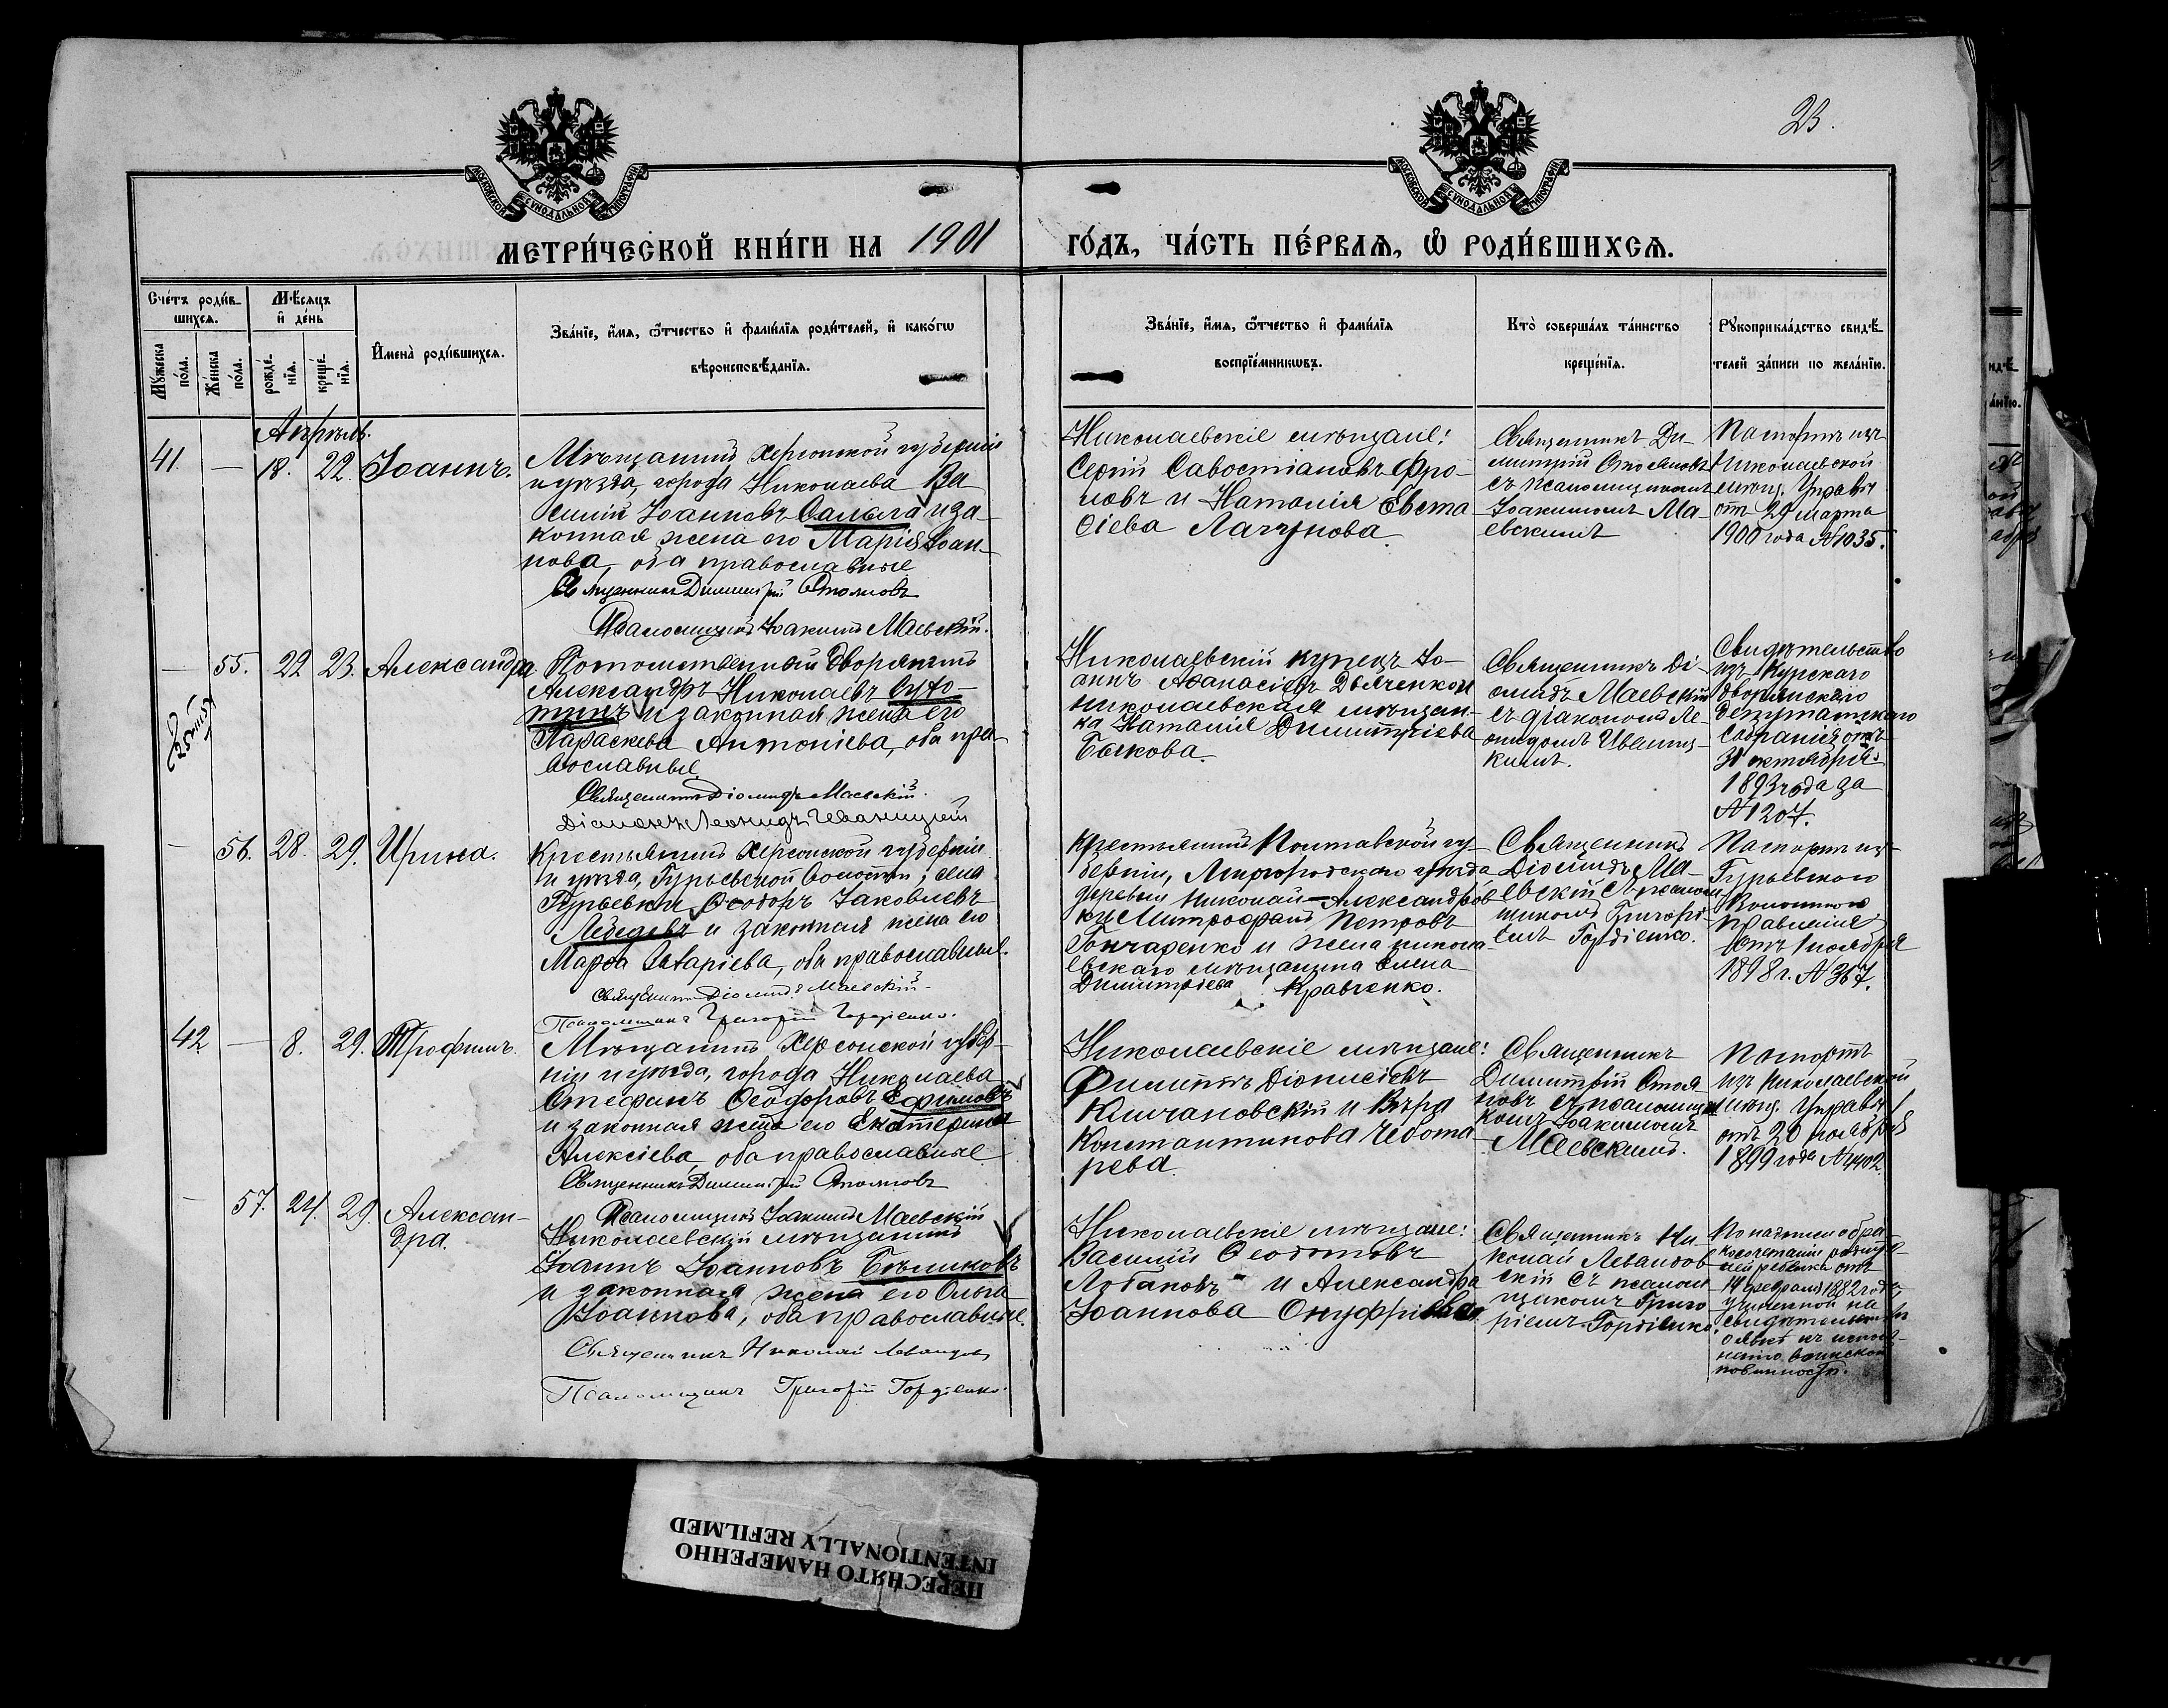 23.
МОСКОВСКОЙ СУНОДАЛЬНОЙ ТИПОГРАФІИ
МОСКОВСКОЙ СУНОДАЛЬНОЙ ТИПОГРАФІИ
МЕТРИ́ЧЕСКОЙ КНИ́ГИ НА 1901
ГО́ДЪ, ЧА́СТЬ ПЕ́РВАѦ, Ѿ РОДИ́ВШИХСѦ.
Сче́тъ роди́в-
шихсѧ.
Мꙋ́жеска по́ла.
Же́нска по́ла.
Мѣ́сѧцъ
и҆ де́нь
рожде́-нїѧ.
креще́-нїѧ.
И҆мена̀ роди́вшихсѧ.
Зва́нїе, и҆́мѧ, ѻ҆́тчество и҆ фами́лїѧ роди́телей, и҆ како́гѡ
вѣроисповѣ́данїѧ.
Зва́нїе, и҆́мѧ, ѻ҆́тчество и҆ фами́лїѧ
воспрїе́мникѡвъ.
Кто̀ соверша́лъ та́инство
креще́нїѧ.
Рꙋкоприкла́дство свидѣ́-
телей за́писи по жела́нїю.
Апрѣль.
41. — 18. 22. Іоаннъ.
Мѣщанинъ Херсонской губерніи
и уѣзда, города Николаева Ва
силій Іоанновъ Самыла и за-
конная жена его Марія Іоан-
нова, оба православные
Священникъ Димитрій Стояновъ
Псаломщикъ Іоакимъ Маевскій.
Николаевскіе мѣщане:
Сергій Савостіановъ Фро-
ловъ и Наталія Евста
сіева Лагунова.
Священникъ Ди-
митрій Стояновъ
съ псаломщикомъ
Іоакимомъ Ма-
евскимъ
Паспортъ изъ
Николаевской
мѣщ. Управы
отъ 29 марта
1900 года №1035.
— 55. 22 23. Александра.
Потомственный дворянинъ
Александръ Николаевъ
и законная жена его
Параскева Антоніева, оба пра-
вославные
Священникъ Діомидъ Маевскій.
Діаконъ Леонидъ Иваницкій
Николаевскій купецъ Іо-
аннъ Аѳанасіевъ Дьяченко и
николаевская мѣщан-
ка Наталія Димитріева
Быкова.
Священникъ Ді-
омидъ Маевскій
съ діакономъ Ле-
онидомъ Иваниц-
кимъ.
Свидѣтельство
изъ Курскаго
дворянскаго
депутатскаго
собранія отъ
31 октября
1893 года за
№1207.
— 56. 28. 29. Ирина.
Крестьянинъ Херсонской губерніи
и уѣзда, Гурьевской волости, села
Гурьевки Ѳеодоръ Іаковлевъ
Лебедевъ и законная жена его
Марѳа Захаріева, оба православные.
Священникъ Діомидъ Маевскій.
Псаломщикъ Григорій Гордіенко.
Крестьянинъ Полтавской гу-
берніи, Миргородскаго уѣзда
деревни Николай-Александров
ки Митрофанъ Петровъ
Гончаренко и жена никола-
евскаго мѣщанина Елена
Димитріева Кравченко.
Священникъ
Діомидъ Ма-
евскій съ псалом
щикомъ Григорі-
емъ Гордіенко.
Паспортъ из
Гурьевского
Волостного
правленія
отъ 1 ноября
1898 г. №367.
42 — 8. 29. Трофимъ.
Мѣщанинъ Херсонской губер-
ніи и уѣзда, города Николаева
Стефанъ Ѳеодоровъ Ефимовъ
и законная жена его Екатерина
Алексіева, оба православные
Священникъ Димитрій Стояновъ
Псаломщикъ Іоакимъ Маевскій
Николаевскіе мѣщане:
Филиппъ Діонисіевъ
Климановскій и Вѣра
Константинова Чебота-
рева.
Священникъ
Димитрій Стоя-
новъ съ псаломщи
комъ Іоакимомъ
Маевскимъ.
Паспортъ
изъ Николаевской
мѣщ. Управы
отъ 20 ноября
1899 года №4402.
— 57. 24. 29. Алексан-
дра.
Николаевскій мѣщанинъ
Іоаннъ Іоанновъ Бѣликовъ
и законная жена его Ольга
Іоаннова, оба православные.
Священникъ Николай Левандов
Псаломщикъ Григорій Гордіенко.
Николаевскіе мѣщане:
Василій Ѳеодотовъ
Лобановъ и Александра
Іоаннова Онуфріева
Священникъ Ни-
колай Левандов
скій съ псалом
щикомъ Григо
ріемъ Гордіенко.
По надписи о бра-
косочетаніи родите-
лей ребенка отъ
14 февраля 1882 года,
учиненной на
свидѣтельствѣ
о явкѣ къ испол-
ненію воинской
повинности.
ПЕРЕСНЯТО НАМЕРЕННО
INTENTIONALLY REFILMED